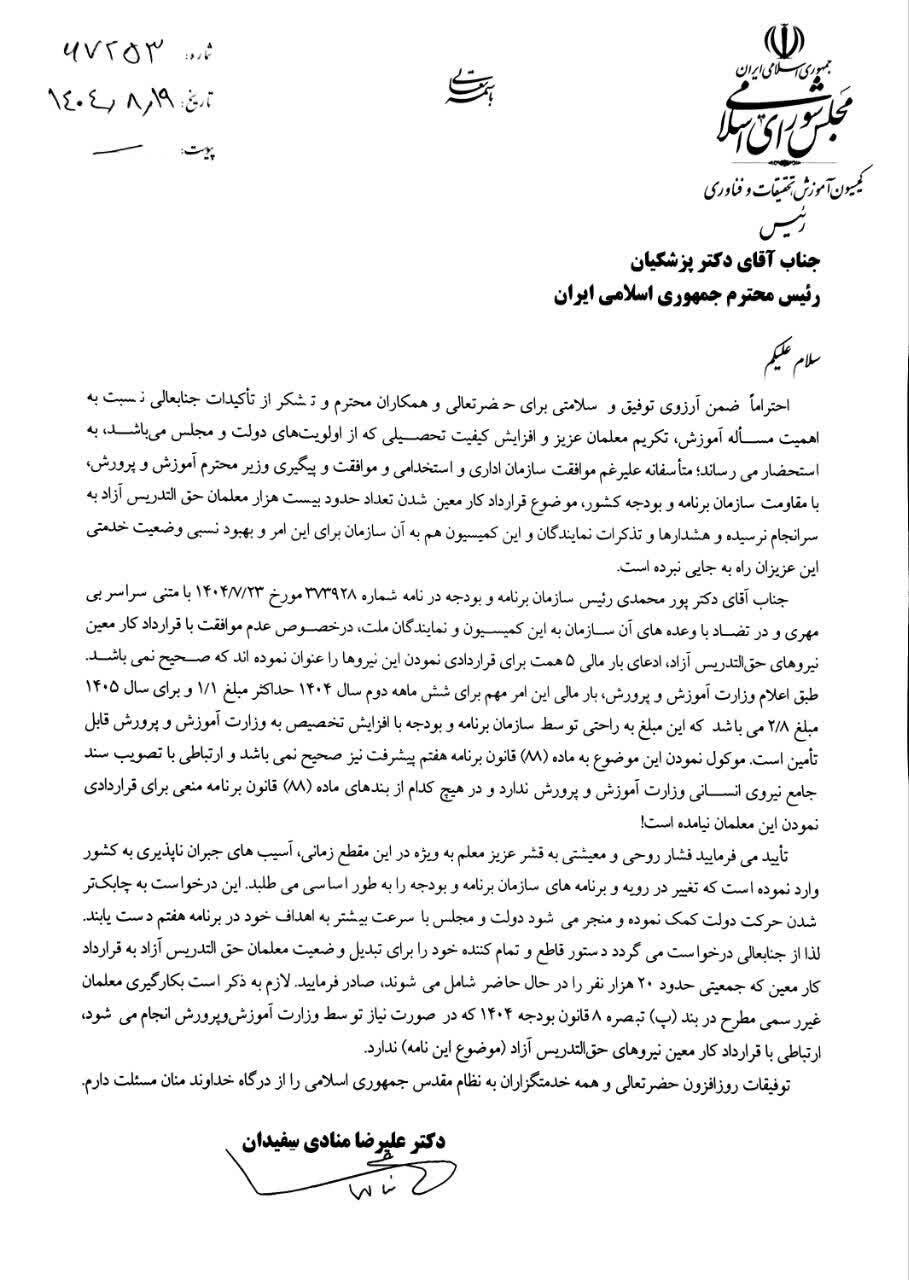 جمهوری اسلامی ایران
مجلس شورای اسلامی
کمیسیون آموزش، تحقیقات و فناوری
رئیس
باسمه تعالی
شماره: ۶۷۲۵۳
تاریخ: ۱۴۰۴/۸/۱۹
پیوست: —
جناب آقای دکتر پزشکیان
رئیس محترم جمهوری اسلامی ایران
سلام علیکم
احتراماً ضمن آرزوی توفیق و سلامتی برای حضرتعالی و همکاران محترم و تشکر از تأکیدات جنابعالی نسبت به
اهمیت مسأله آموزش، تکریم معلمان عزیز و افزایش کیفیت تحصیلی که از اولویت‌های دولت و مجلس می‌باشد، به
استحضار می رساند؛ متأسفانه علیرغم موافقت سازمان اداری و استخدامی و موافقت و پیگیری وزیر محترم آموزش و پرورش،
با مقاومت سازمان برنامه و بودجه کشور، موضوع قرارداد کار معین شدن تعداد حدود بیست هزار معلمان حق التدریس آزاد به
سرانجام نرسیده و هشدارها و تذکرات نمایندگان و این کمیسیون هم به آن سازمان برای این امر و بهبود نسبی وضعیت خدمتی
این عزیزان راه به جایی نبرده است.
جناب آقای دکتر پور محمدی رئیس سازمان برنامه و بودجه در نامه شماره ۳۷۳۹۲۸ مورخ ۱۴۰۴/۷/۲۳ با متنی سراسر بی
مهری و در تضاد با وعده های آن سازمان به این کمیسیون و نمایندگان ملت، درخصوص عدم موافقت با قرارداد کار معین
نیروهای حق‌التدریس آزاد، ادعای بار مالی ۵ همت برای قراردادی نمودن این نیروها را عنوان نموده اند که صحیح نمی باشد.
طبق اعلام وزارت آموزش و پرورش، بار مالی این امر مهم برای شش ماهه دوم سال ۱۴۰۴ حداکثر مبلغ ۱/۱ و برای سال ۱۴۰۵
مبلغ ۲/۸ می باشد که این مبلغ به راحتی توسط سازمان برنامه و بودجه با افزایش تخصیص به وزارت آموزش و پرورش قابل
تأمین است. موکول نمودن این موضوع به ماده (۸۸) قانون برنامه هفتم پیشرفت نیز صحیح نمی باشد و ارتباطی با تصویب سند
جامع نیروی انسانی وزارت آموزش و پرورش ندارد و در هیچ کدام از بندهای ماده (۸۸) قانون برنامه منعی برای قراردادی
نمودن این معلمان نیامده است!
تأیید می فرمایید فشار روحی و معیشتی به قشر عزیز معلم به ویژه در این مقطع زمانی، آسیب های جبران ناپذیری به کشور
وارد نموده است که تغییر در رویه و برنامه های سازمان برنامه و بودجه را به طور اساسی می طلبد. این درخواست به چابک‌تر
شدن حرکت دولت کمک نموده و منجر می شود دولت و مجلس با سرعت بیشتر به اهداف خود در برنامه هفتم دست یابند.
لذا از جنابعالی درخواست می گردد دستور قاطع و تمام کننده خود را برای تبدیل وضعیت معلمان حق التدریس آزاد به قرارداد
کار معین که جمعیتی حدود ۲۰ هزار نفر را در حال حاضر شامل می شوند، صادر فرمایید. لازم به ذکر است بکارگیری معلمان
غیرر سمی مطرح در بند (پ) تبصره ۸ قانون بودجه ۱۴۰۴ که در صورت نیاز توسط وزارت آموزش‌وپرورش انجام می شود،
ارتباطی با قرارداد کار معین نیروهای حق‌التدریس آزاد (موضوع این نامه) ندارد.
توفیقات روزافزون حضرتعالی و همه خدمتگزاران به نظام مقدس جمهوری اسلامی را از درگاه خداوند منان مسئلت دارم.
دکتر علیرضا منادی سفیدان